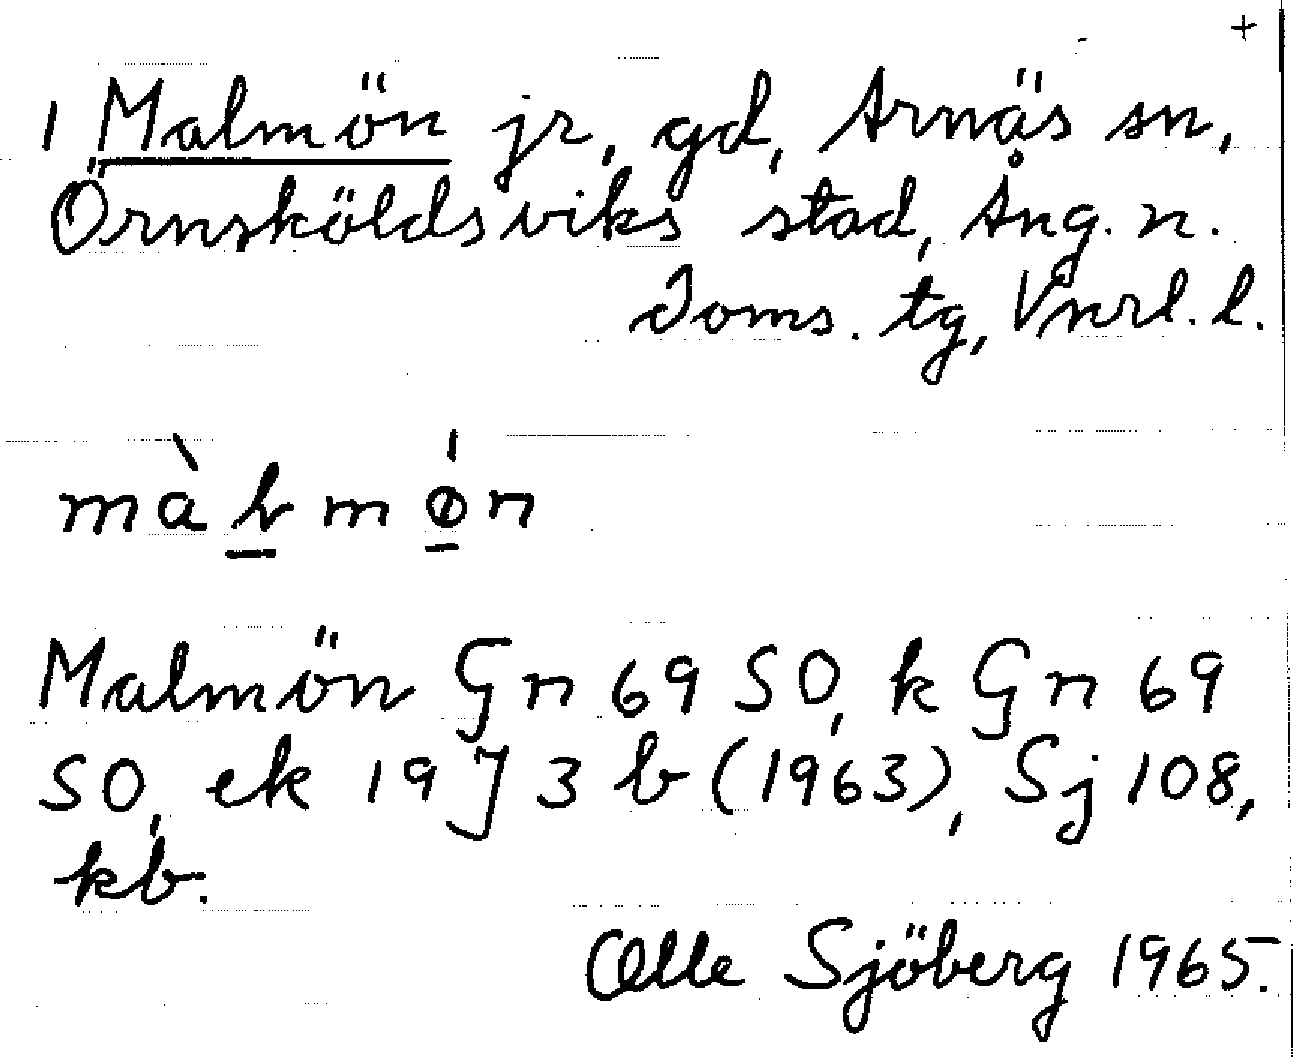 +
1 Malmön jr, gd, Arnäs sn,
Örnsköldsviks stad, Ång. n.
Doms. tg, Vnrl. l.
màlmǿn
Malmön Gn 69 SO, k Gn 69
SO, ek 19 J 3 b (1963), Sj 108,
kb.
Olle Sjöberg 1965.